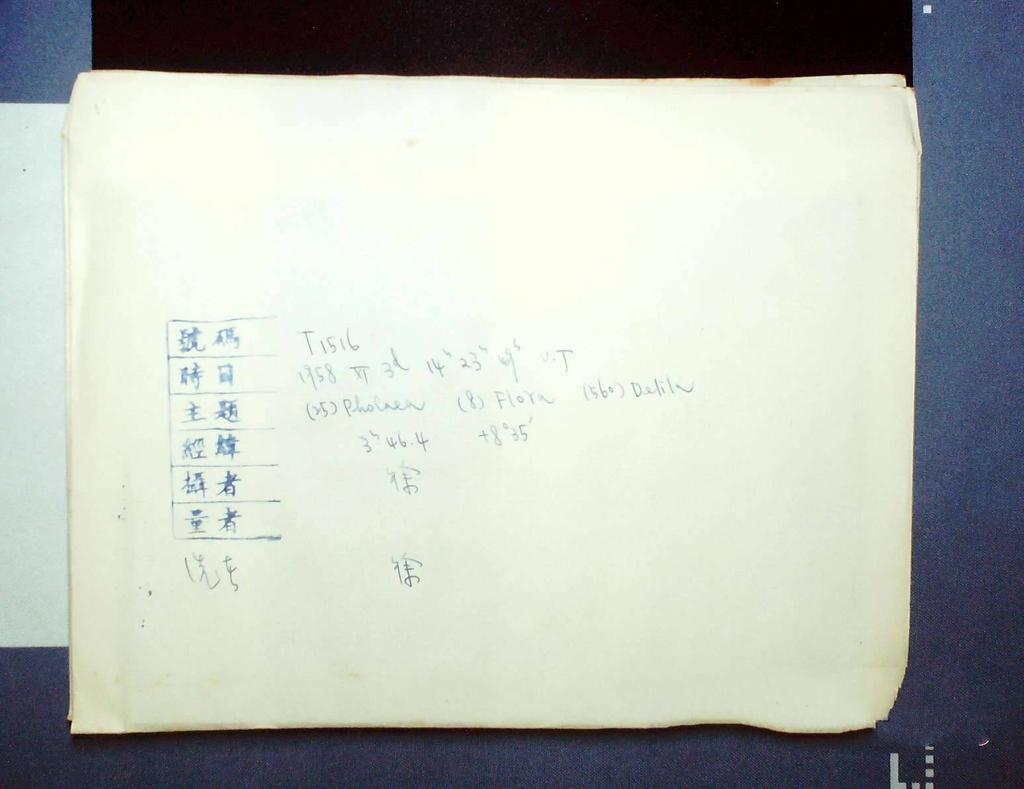 號碼 T1516
時日 1958 XI 3d 14h 23m 49s U.T
主題 (25) Phocaea (8) Flora (560) Delila
經緯 3h 46.4 +8°35'
攝者 徐
量者
洗者 徐